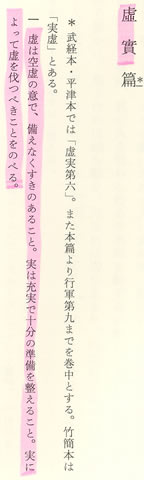 虛實篇*
＊ 武経本・平津本では「虚実第六」。また本篇より行軍第九までを巻中とする。竹簡本は
「実虚」とある。
一 虚は空虚の意で、備えなくすきのあること。実は充実で十分の準備を整えること。実に
よって虚を伐つべきことをのべる。